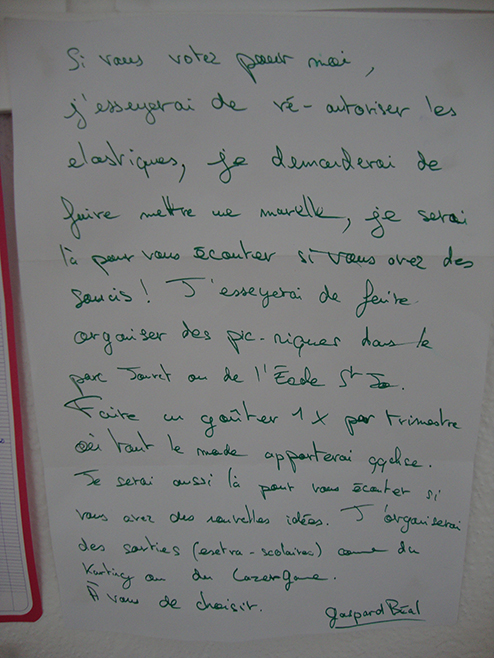 Si vous votez pour moi,
j'esseyerai de ré-autoriser les
elastiques, je demanderai de
faire mettre une marelle, je serai
là pour vous écouter si vous avez des
soucis! J'esseyerai de faire
organiser des pic-niques dans le
parc Jouret ou de l'École St Jo.
Faire un goûter 1X par trimestre
où tout le monde apporterai qqchse.
Je serai aussi là pour vous écouter si
vous avez des nouvelles idées. J'organiserai
des sorties (esetra-scolaires) comme du
Karting ou du LazerGame.
À vous de choisir.
Gaspard Béal